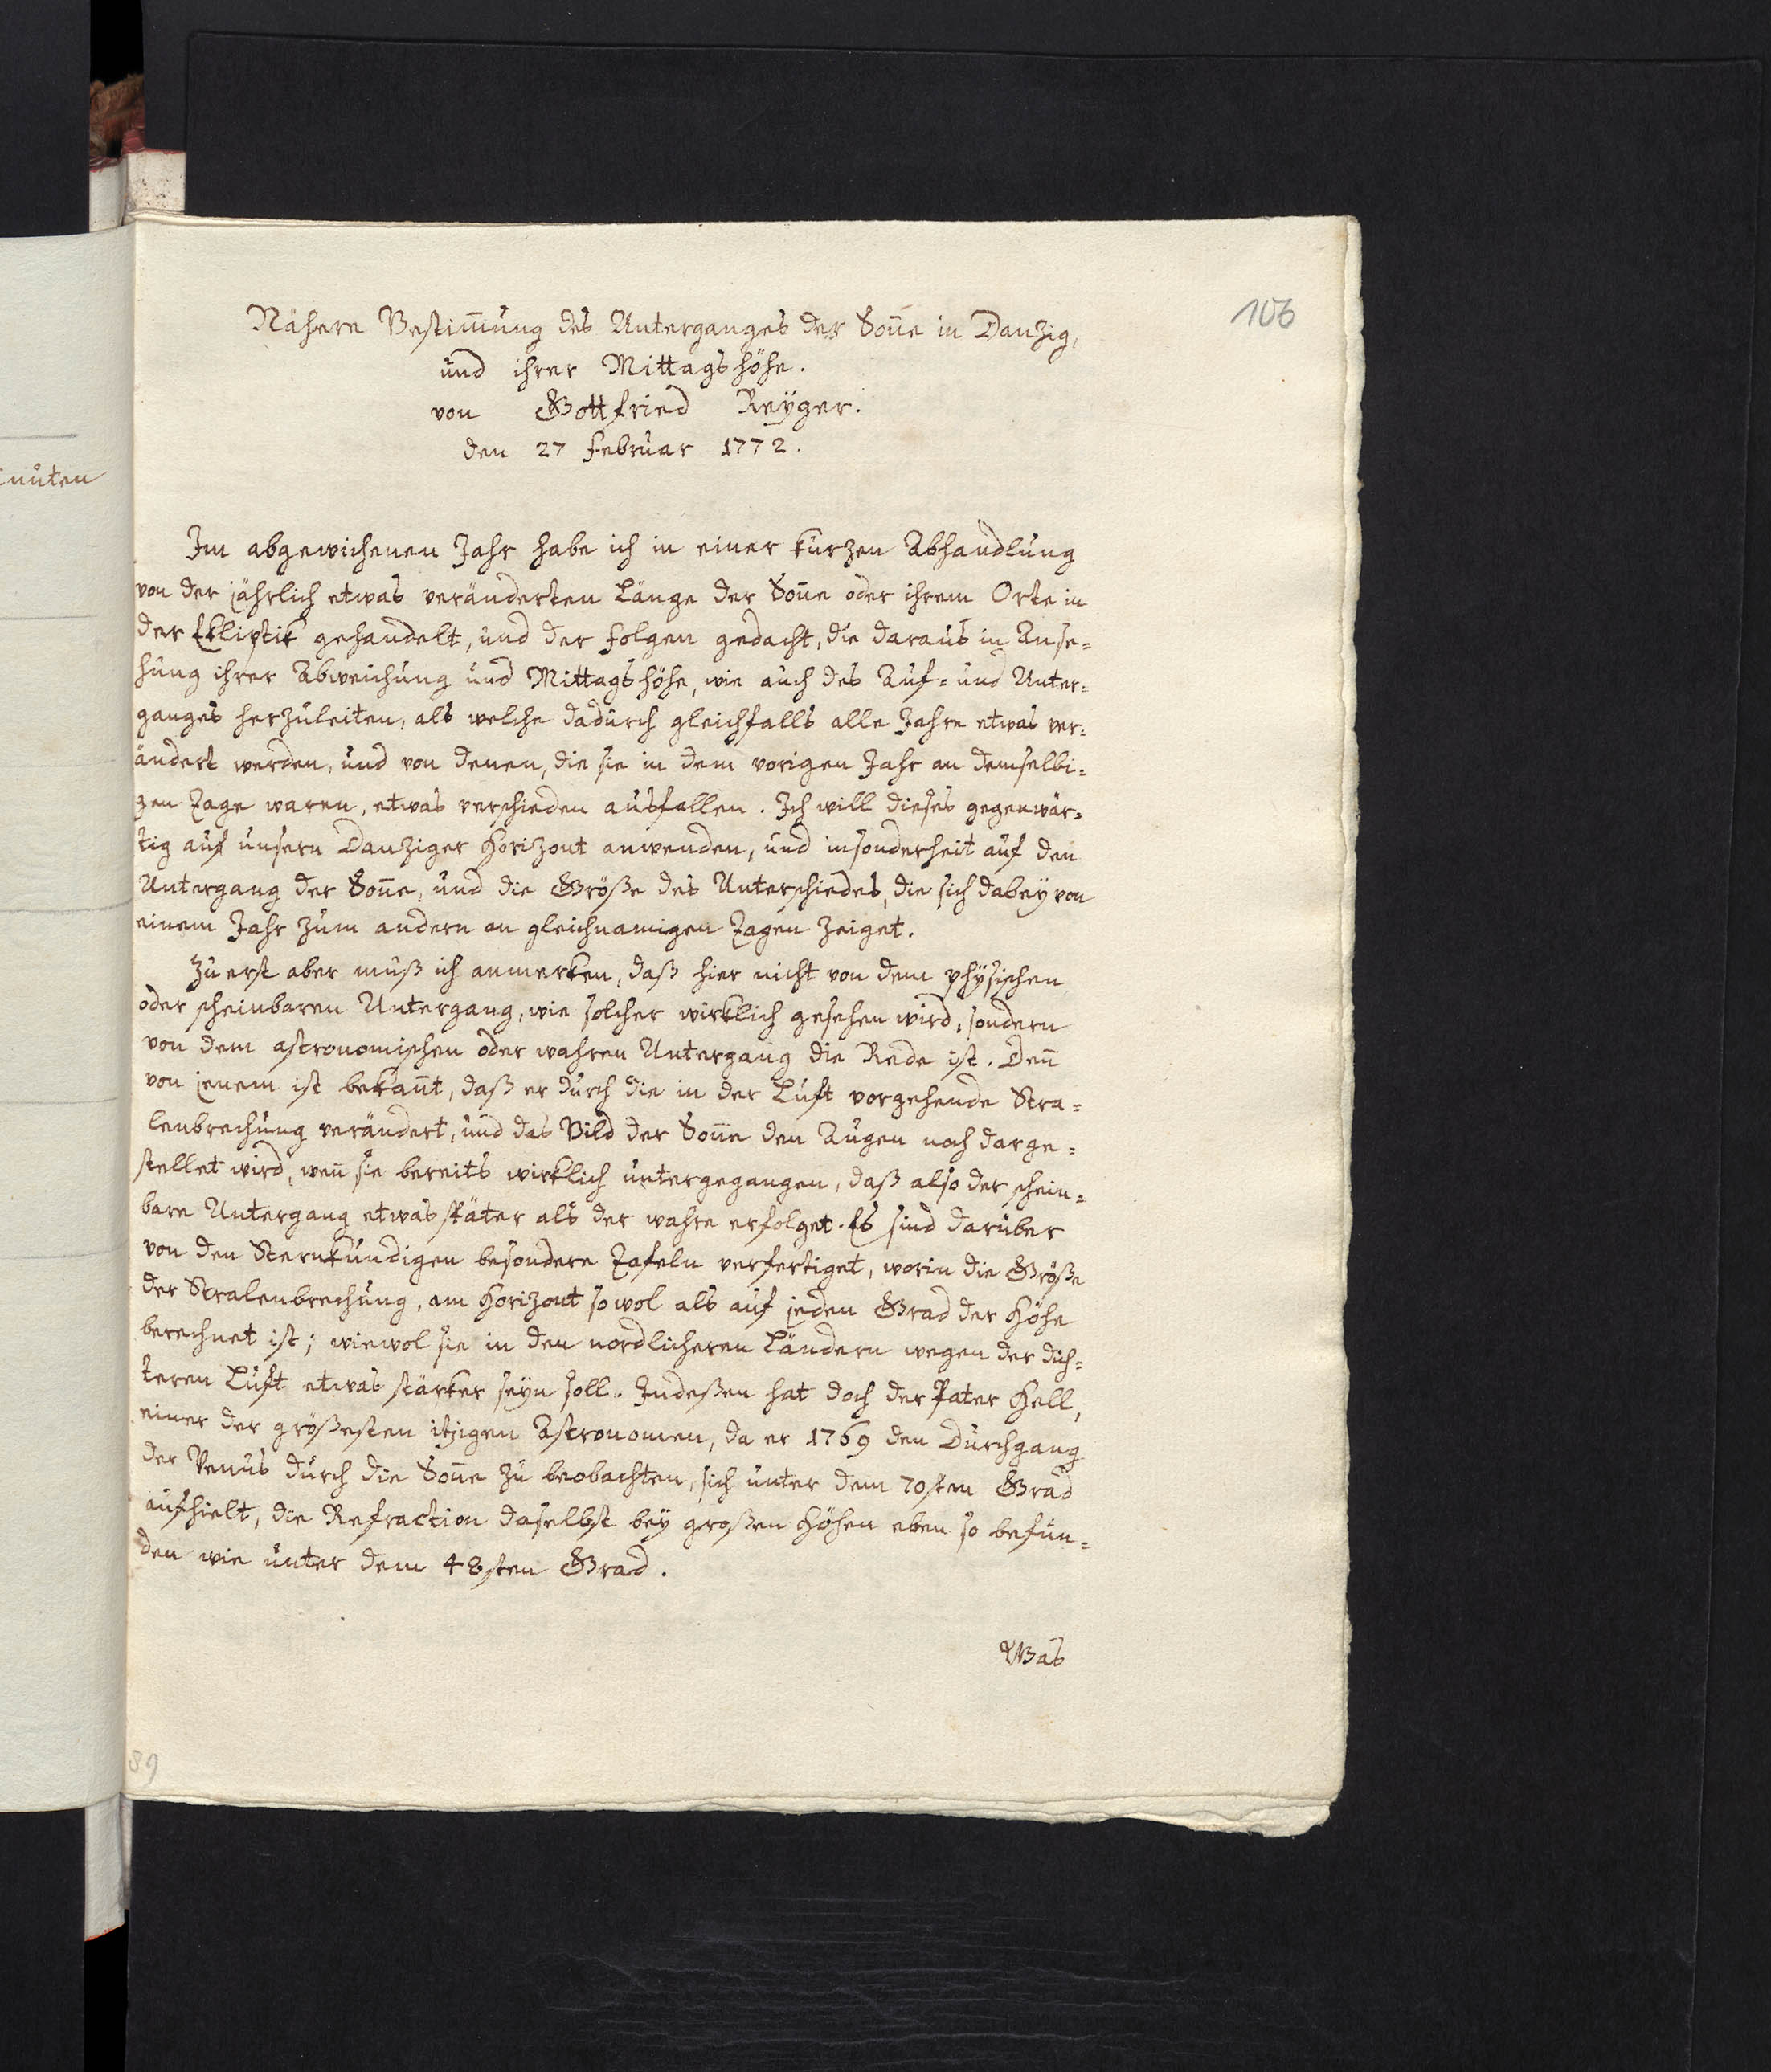 106
Nähere Bestim̄ung des Unterganges der Son̄e in Danzig,
und ihrer Mittagshöhe.
von Gottfried Reÿger.
den 27 Februar 1772.
Im abgewichenen Jahr habe ich in einer kurzen Abhandlung
von der jährlich etwas veränderten Länge der Son̄e oder ihrem Orte in
der Ekliptik gehandelt, und der Folgen gedacht, die daraus in Anse=
hung ihrer Abweichung und Mittagshöhe, wie auch des Auf= und Unter=
ganges herzuleiten, als welche dadurch gleichfalls alle Jahre etwas ver=
ändert werden, und von denen, die sie in dem vorigen Jahr an demselbi=
gen Tage waren, etwas verschieden ausfallen. Ich will dieses gegenwär=
tig auf unsern Danziger Horizont anwenden, und insonderheit auf den
Untergang der Son̄e, und die Größe des Unterschiedes, die sich dabeÿ von
einem Jahr zum andern an gleichnamigen Tagen zeiget.
Zu erst aber muß ich anmerken, daß hier nicht von dem phÿsischen
oder scheinbaren Untergang, wie solcher wirklich gesehen wird, sondern
von dem astronomischen oder wahren Untergang die Rede ist. Den̄
von jenem ist bekan̄t, daß er durch die in der Luft vorgehende Stra=
lenbrechung verändert, und das Bild der Son̄e den Augen noch darge=
stellet wird, wen̄ sie bereits wirklich untergegangen, daß also der schein=
bare Untergang etwas später als der wahre erfolget. Es sind darüber
von den Sternkundigen besondere Tafeln verfertiget, worin die Größe
der Stralenbrechung, am Horizont so wol als auf jeden Grad der Höhe
berechnet ist; wiewol sie in den nordlicheren Ländern wegen der dich=
teren Luft etwas stärker seÿn soll. Indeßen hat doch der Pater Hell,
einer der größesten itzigen Astronomen, da er 1769 den Durchgang
der Venus durch die Son̄e zu beobachten, sich unter dem 70sten Grad
aufhielt, die Refraction daselbst beÿ großen Höhen eben so befun=
den wie unter dem 48sten Grad.
Was
89